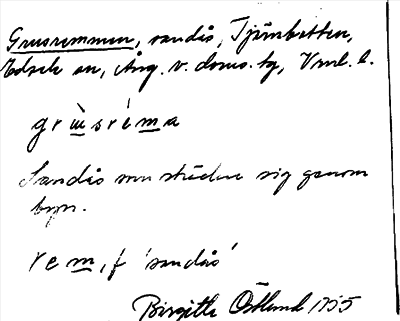 Grusremmen, sandås, Tjärnbotten,
Edsele sn, Ång. v. doms. tg, Vnrl. l.
grusréma
Sandås som sträcker sig genom
byn.
rem, f 'sandås'
Birgitta Östlund 1955